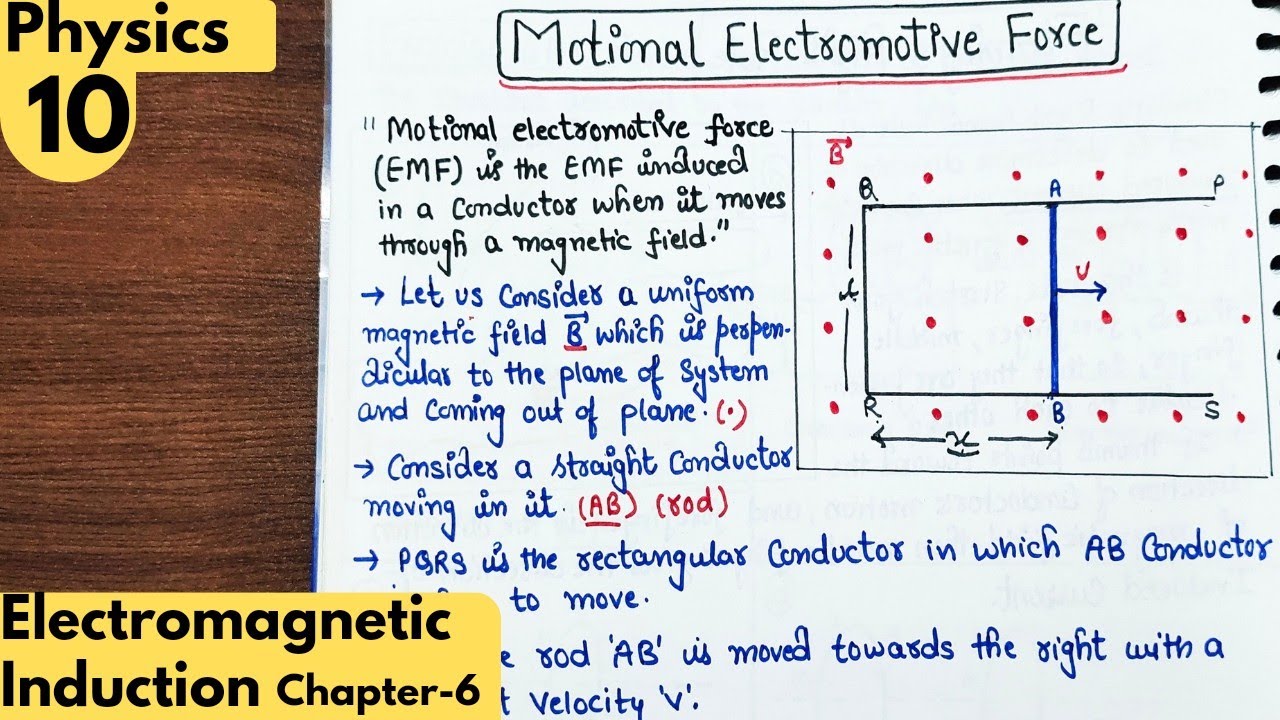 Physics
10
Motional Electromotive Force
" Motional electromotive force
(EMF) is the EMF induced
in a conductor when it moves
through a magnetic field."
→ Let us Consider a uniform
magnetic field B⃗ which is perpen-
dicular to the plane of System
and Coming out of plane. (•)
→ Consider a straight Conductor
moving in it. (AB) (rod)
→ PQRS is the rectangular Conductor in which AB Conductor
to move.
rod 'AB' is moved towards the right with a
Velocity 'V'.
B⃗
Q A P
v
l
R B S
x
Electromagnetic
Induction Chapter-6